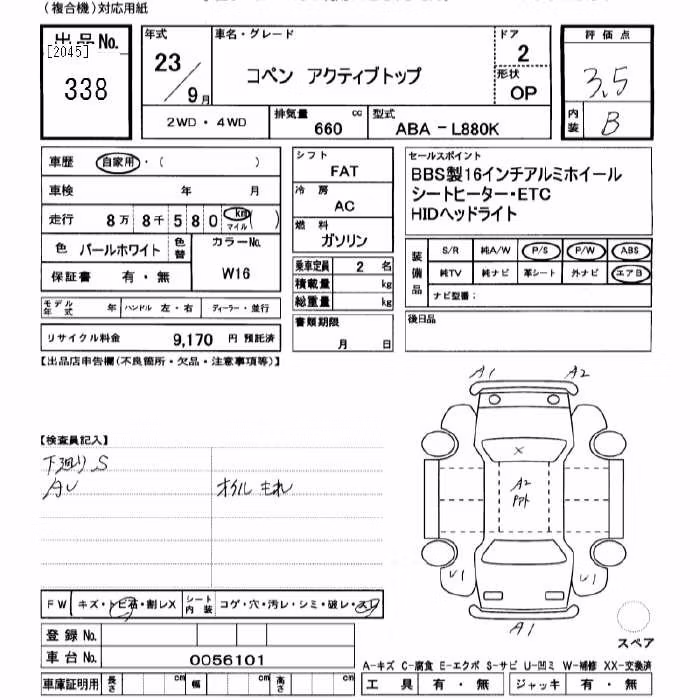 (複合機)対応用紙
出品No.
[2045]
338
年式
23/9月
車名・グレード
コペン アクティブトップ
ドア
2
形状
OP
評価点
3.5
内装
B
2WD・4WD
排気量
660 cc
型式
ABA-L880K
車歴 自家用・( )
車検 年 月
走行 8万8千580 km マイル ( )
色 パールホワイト 色替
カラーNo.
W16
保証書 有・無
モデル年式 年 ハンドル 左・右 ディーラー・並行
リサイクル料金 9,170 円 預託済
シフト
FAT
冷房
AC
燃料
ガソリン
乗車定員 2 名
積載量 kg
総重量 kg
書類期限
月 日
セールスポイント
BBS製16インチアルミホイール
シートヒーター・ETC
HIDヘッドライト
装備品
S/R 純A/W P/S P/W ABS
純TV 純ナビ 革シート 外ナビ エアB
ナビ型番:
後日品
【出品店申告欄(不良箇所・欠品・注意事項等)】
【検査員記入】
下廻り S
AU
オイルモレ
A1 A2
X
A2
U1 U1
A1
スペア
FW キズ・トビ石・割レX
シート内装 コゲ・穴・汚レ・シミ・破レ・スレ
登録No.
車台No. 0056101
車庫証明用 長さ cm 幅 cm 高さ cm
A-キズ C-腐食 E-エクボ S-サビ U-凹ミ W-補修 XX-交換済
工具 有・無 ジャッキ 有・無